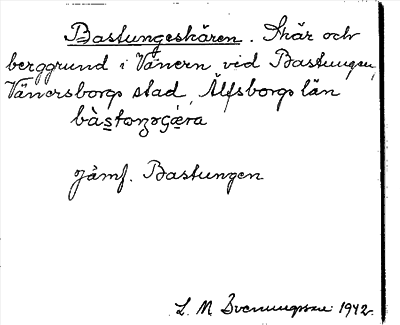 Bastungeskären. Skär och
berggrund i Vänern vid Bastungen,
Vänersborgs stad, Älfsborgs län
Jämf. Bastungen
L. M. Svenungsson 1942.